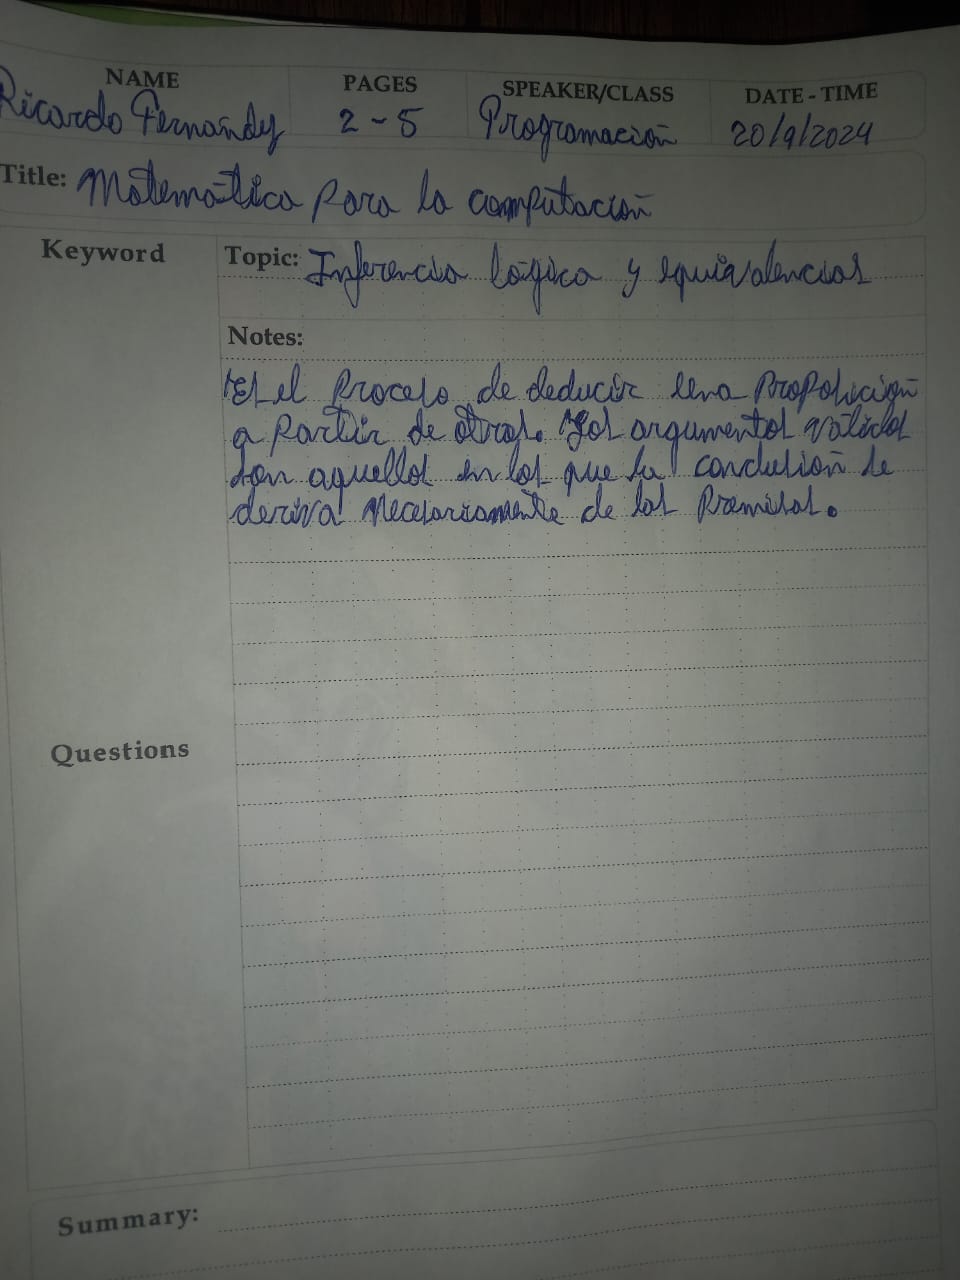 NAME PAGES SPEAKER/CLASS DATE - TIME
Ricardo Fernandy 2 - 5 Programación 20/9/2024
Title: Matemática para la computación
Keyword
Topic: Inferencia lógica y equivalencias
Notes:
Es el proceso de deducir una proposición
a partir de otras. Los argumentos válidos
son aquellos en los que la conclusión se
deriva necesariamente de las premisas.
Questions
Summary: